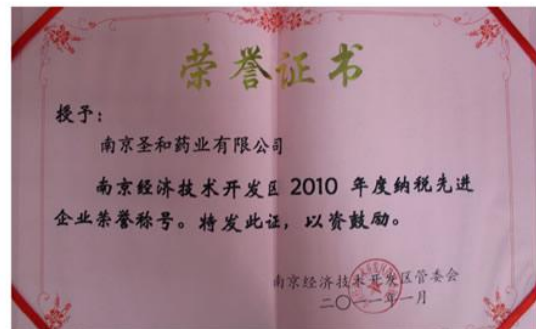 荣誉证书
授予：
南京圣和药业有限公司
南京经济技术开发区 2010 年度纳税先进
企业荣誉称号。特发此证，以资鼓励。
南京经济技术开发区管委会
二〇一一年一月